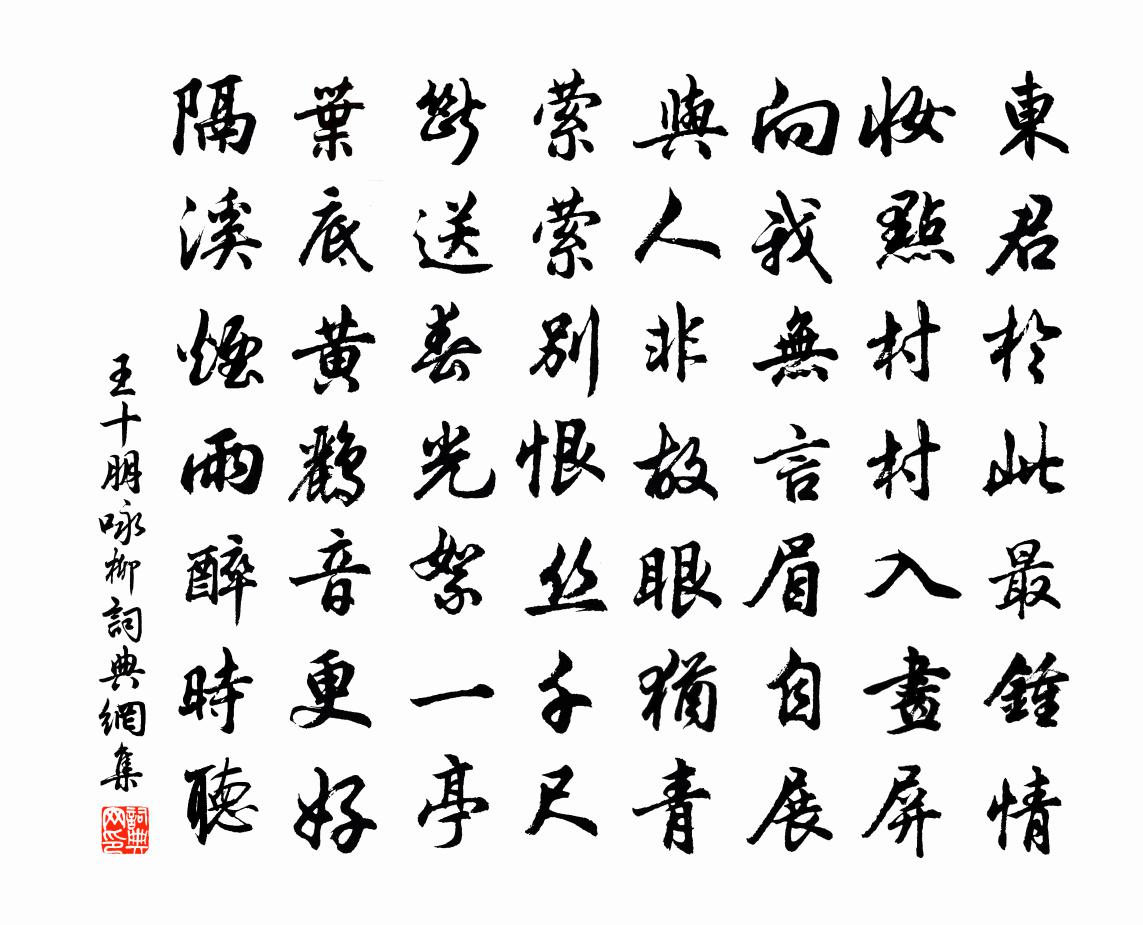 東君於此最鍾情
妝點村村入畫屏
向我無言眉自展
與人非故眼猶青
萦萦別恨丝千尺
斷送春光絮一亭
葉底黃鸝音更好
隔溪煙雨醉時聽
王十朋咏柳詞典網集
詞典网印